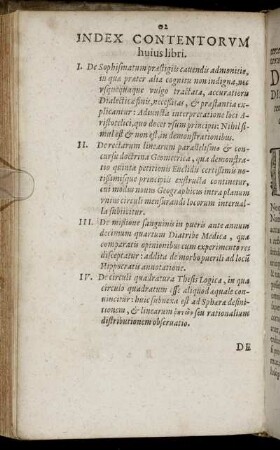 02
INDEX CONTENTORVM
huius libri.
I. De Sophismatum præstigiis cauendis admonitio,
in qua præter alia cognitu non indigna, nec
vsquequaque vulgo tractata, accuratior
Dialecticæ finis, necessitas, & præstantia ex
plicantur: Adiuncta interpretatione loci A-
ristotelici, quo docet vsum principii: Nihil si-
mul est & non est, in demonstrationibus.
II. De rectarum linearum parallelismo & con-
cursu doctrina Geometrica, qua demonstra-
tio quintæ petitionis Euclidis certissimis no-
tissimisque principiis exstructa continetur,
cui modus nouus Geographicus intra planum
vnius circuli mensurandi locorum interual-
la subiicitur.
III. De missione sanguinis in pueris ante annum
decimum quartum Diatribe Medica, qua
comparatis opinionibus cum experimento res
disceptatur: addita de morbo puerili ad locũ
Hippocratis annotatione.
IV. De circuli quadratura Thesis Logica, in qua
circulo quadratum esse aliquod æquale con-
uincitur: huic subnexa est ad Sphæræ definì-
tionem, & linearum ῥητῶν seu rationalium
distributionem obseruatio.
DE